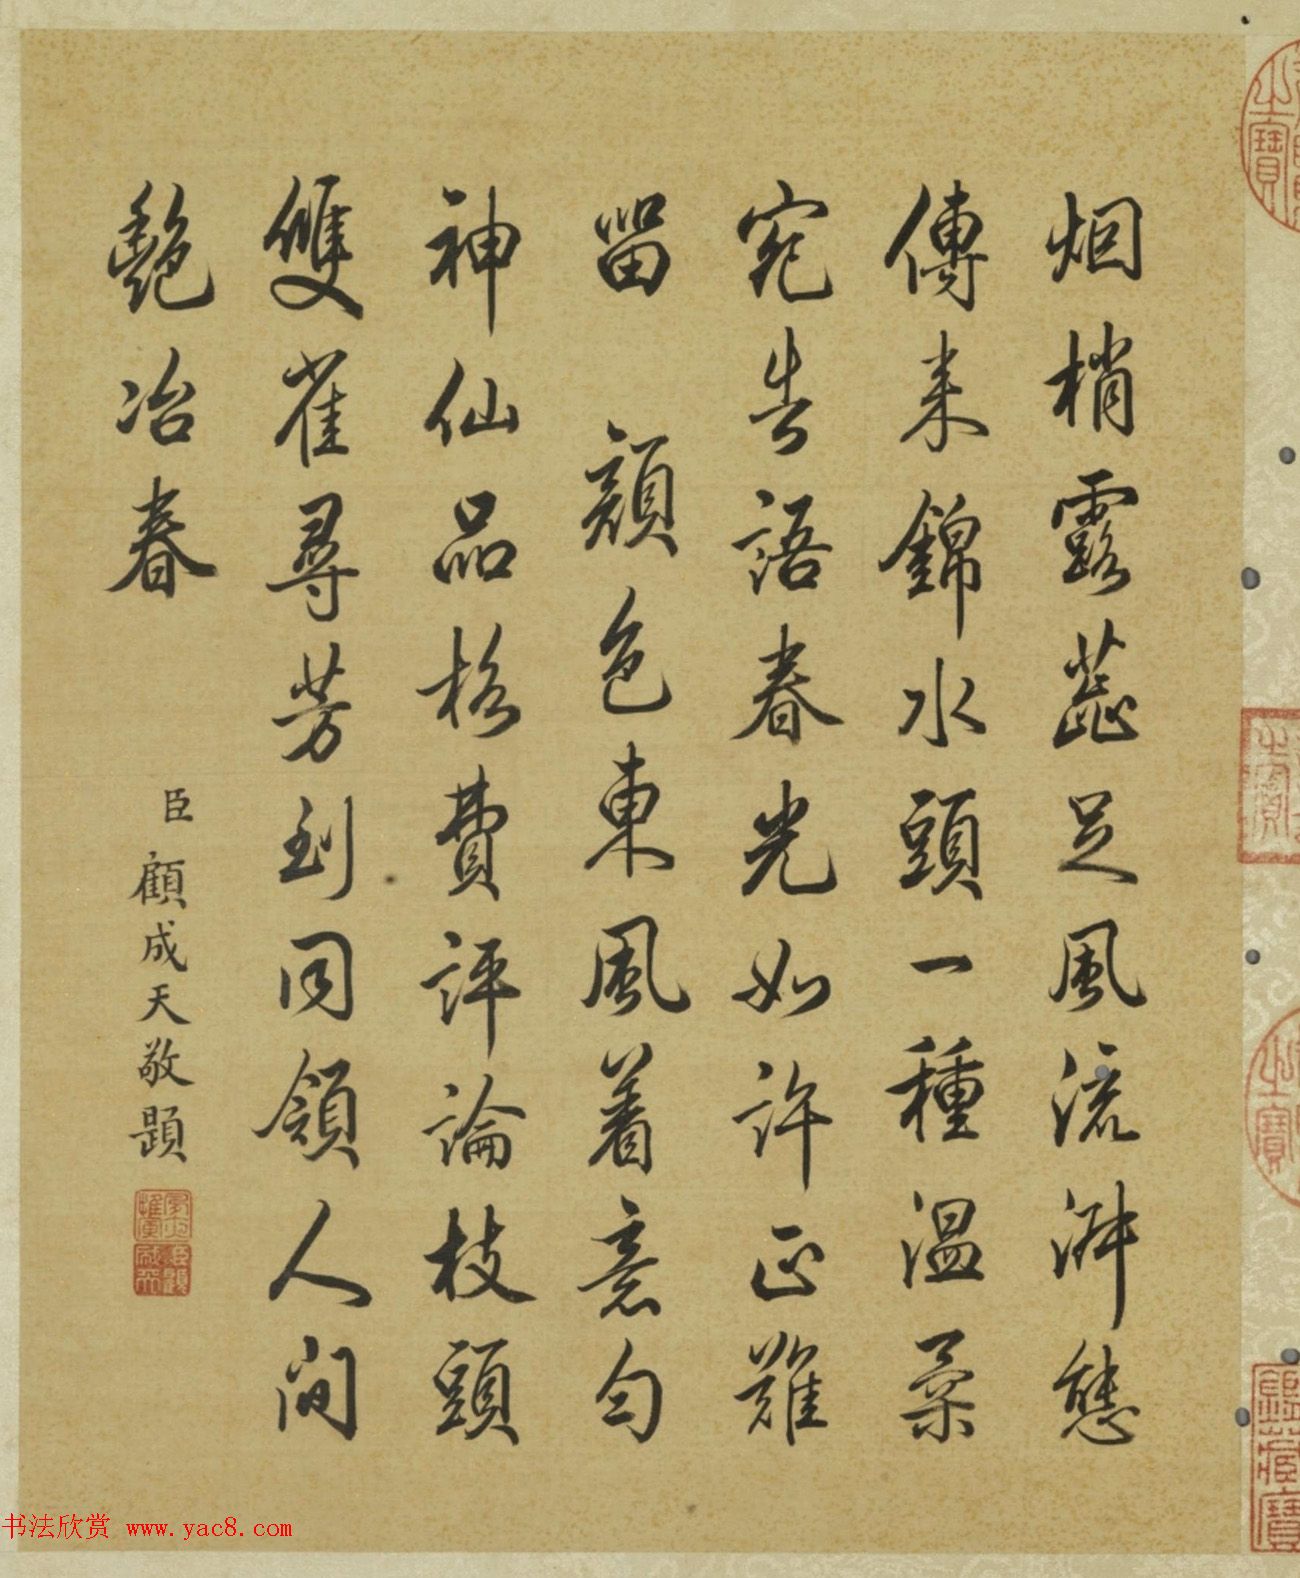 烟梢露蕊足風流淋態
傳来錦水頭一種温柔
宛告語春光如許正難
留 顔色東風着意勻
神仙品格費評論枝頭
雙雀尋芳到同領人間
艷冶春
臣顧成天敬題
书法欣赏 www.yac8.com